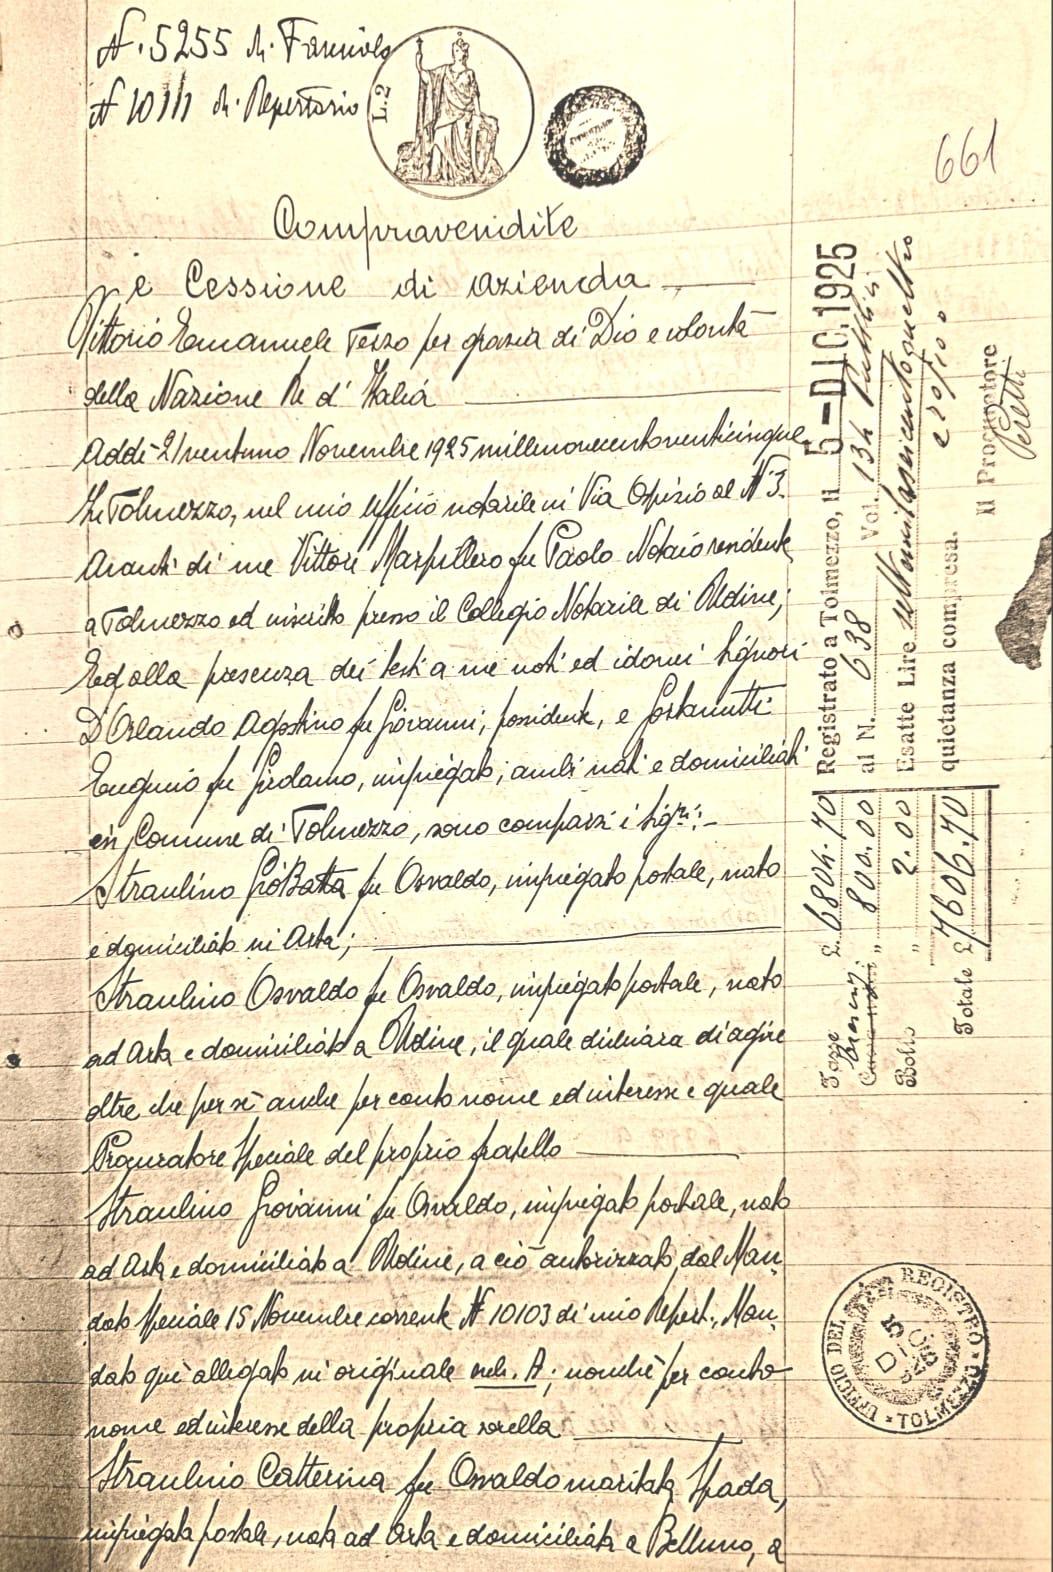 N. 5255 di Fascicolo
N 10111 di Repertorio
L.2
661
Compravendite
e Cessione di azienda
Vittorio Emanuele Terzo per grazia di Dio e volontà
della Nazione Re d'Italia
Addì 21 ventuno Novembre 1925 millenovecentoventicinque
In Tolmezzo, nel mio ufficio notarile in Via Ospizio al N 3.
Avanti di me Vittori Marpillero fu Paolo Notaio residente
a Tolmezzo ed inscritto presso il Collegio Notarile di Udine;
Ed alla presenza dei testi a me noti ed idonei Signori
D'Orlando Agostino fu Giovanni, possidente, e
Eugenio fu Girolamo, impiegato; ambi nati e domiciliati
in Comune di Tolmezzo, sono comparsi i Sig.ri:
Straulino GioBatta fu Osvaldo, impiegato postale, nato
e domiciliato in Arta;
Straulino Osvaldo fu Osvaldo, impiegato postale, nato
ad Arta e domiciliato a Udine, il quale dichiara di agire
oltre che per sè anche per conto nome ed interesse e quale
Procuratore Speciale del proprio fratello
Straulino Giovanni fu Osvaldo, impiegato postale, nato
ad Arta e domiciliato a Udine, a ciò autorizzato dal Man-
dato Speciale 15 Novembre corrente N 10103 di mio Repert., Man-
dato quì allegato in originale sub. A; nonchè per conto
nome ed interesse della propria sorella
Straulino Catterina fu Osvaldo maritata Spada,
impiegata postale, nata ad Arta e domiciliata a Belluno, a
Registrato a Tolmezzo, il 5-DIC.1925
al N. 638 Vol. 134
Esatte Lire settemilaseicentoquattro
e 70/100
quietanza compresa.
Il Procuratore
Tasse £ 6804.70
" 800.00
Bollo " 2.00
Totale £ 7606.70
UFFICIO DEL REGISTRO * TOLMEZZO *
5 DIC 925